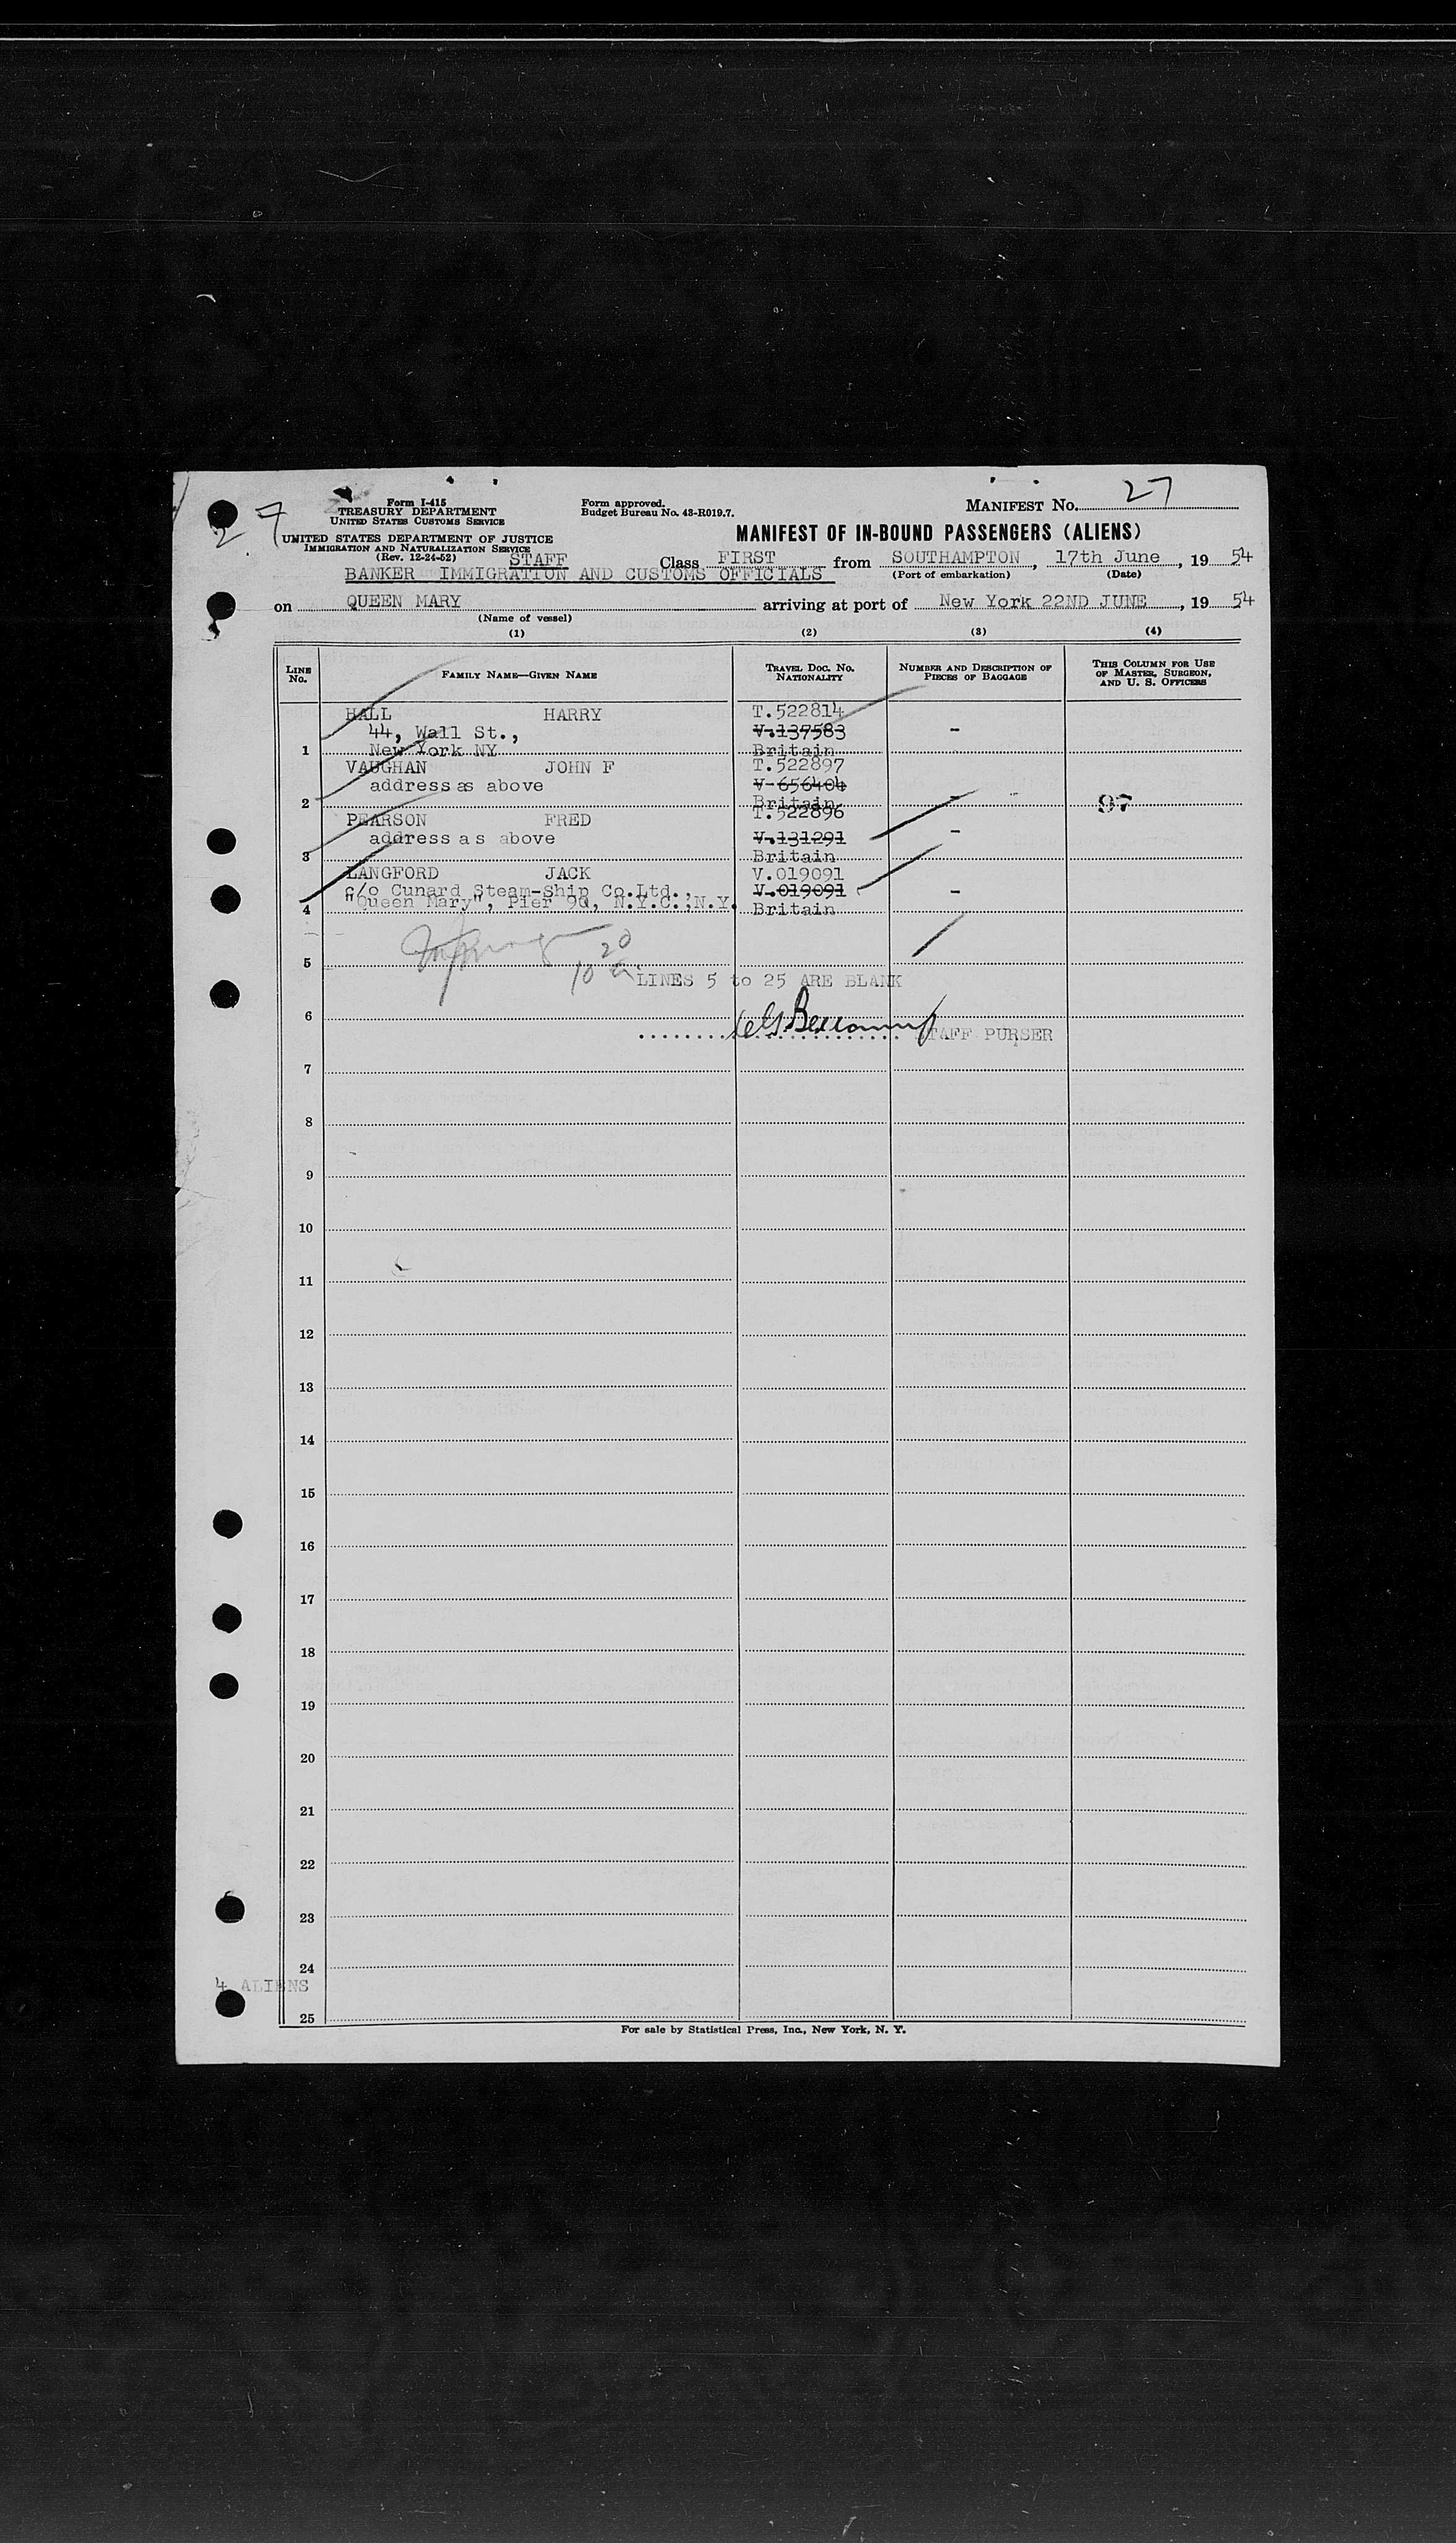 27
Form I-415
TREASURY DEPARTMENT
UNITED STATES CUSTOMS SERVICE
UNITED STATES DEPARTMENT OF JUSTICE
IMMIGRATION AND NATURALIZATION SERVICE
(Rev. 12-24-52)
Form approved.
Budget Bureau No. 43-R019.7.
MANIFEST No. 27
MANIFEST OF IN-BOUND PASSENGERS (ALIENS)
STAFF Class FIRST from SOUTHAMPTON, 17th June, 1954
BANKER IMMIGRATION AND CUSTOMS OFFICIALS (Port of embarkation) (Date)
on QUEEN MARY arriving at port of New York 22ND JUNE, 1954
(Name of vessel)
(1) (2) (3) (4)
LINE No. FAMILY NAME—GIVEN NAME TRAVEL DOC. NO. NATIONALITY NUMBER AND DESCRIPTION OF PIECES OF BAGGAGE THIS COLUMN FOR USE OF MASTER, SURGEON, AND U. S. OFFICERS
HALL HARRY T.522814
44, Wall St., V.137583 -
1 New York NY Britain
VAUGHAN JOHN F T.522897
address as above V-656404
2 Britain - 97
PEARSON FRED T.522896
address as above V.131291 -
3 Britain
LANGFORD JACK V.019091
c/o Cunard Steam-Ship Co.Ltd., V.019091 -
4 "Queen Mary", Pier 90, N.Y.C.,N.Y. Britain
5
10 20
LINES 5 to 25 ARE BLANK
6
STAFF PURSER
7
8
9
10
11
12
13
14
15
16
17
18
19
20
21
22
23
24
4 ALIENS
25
For sale by Statistical Press, Inc., New York, N. Y.